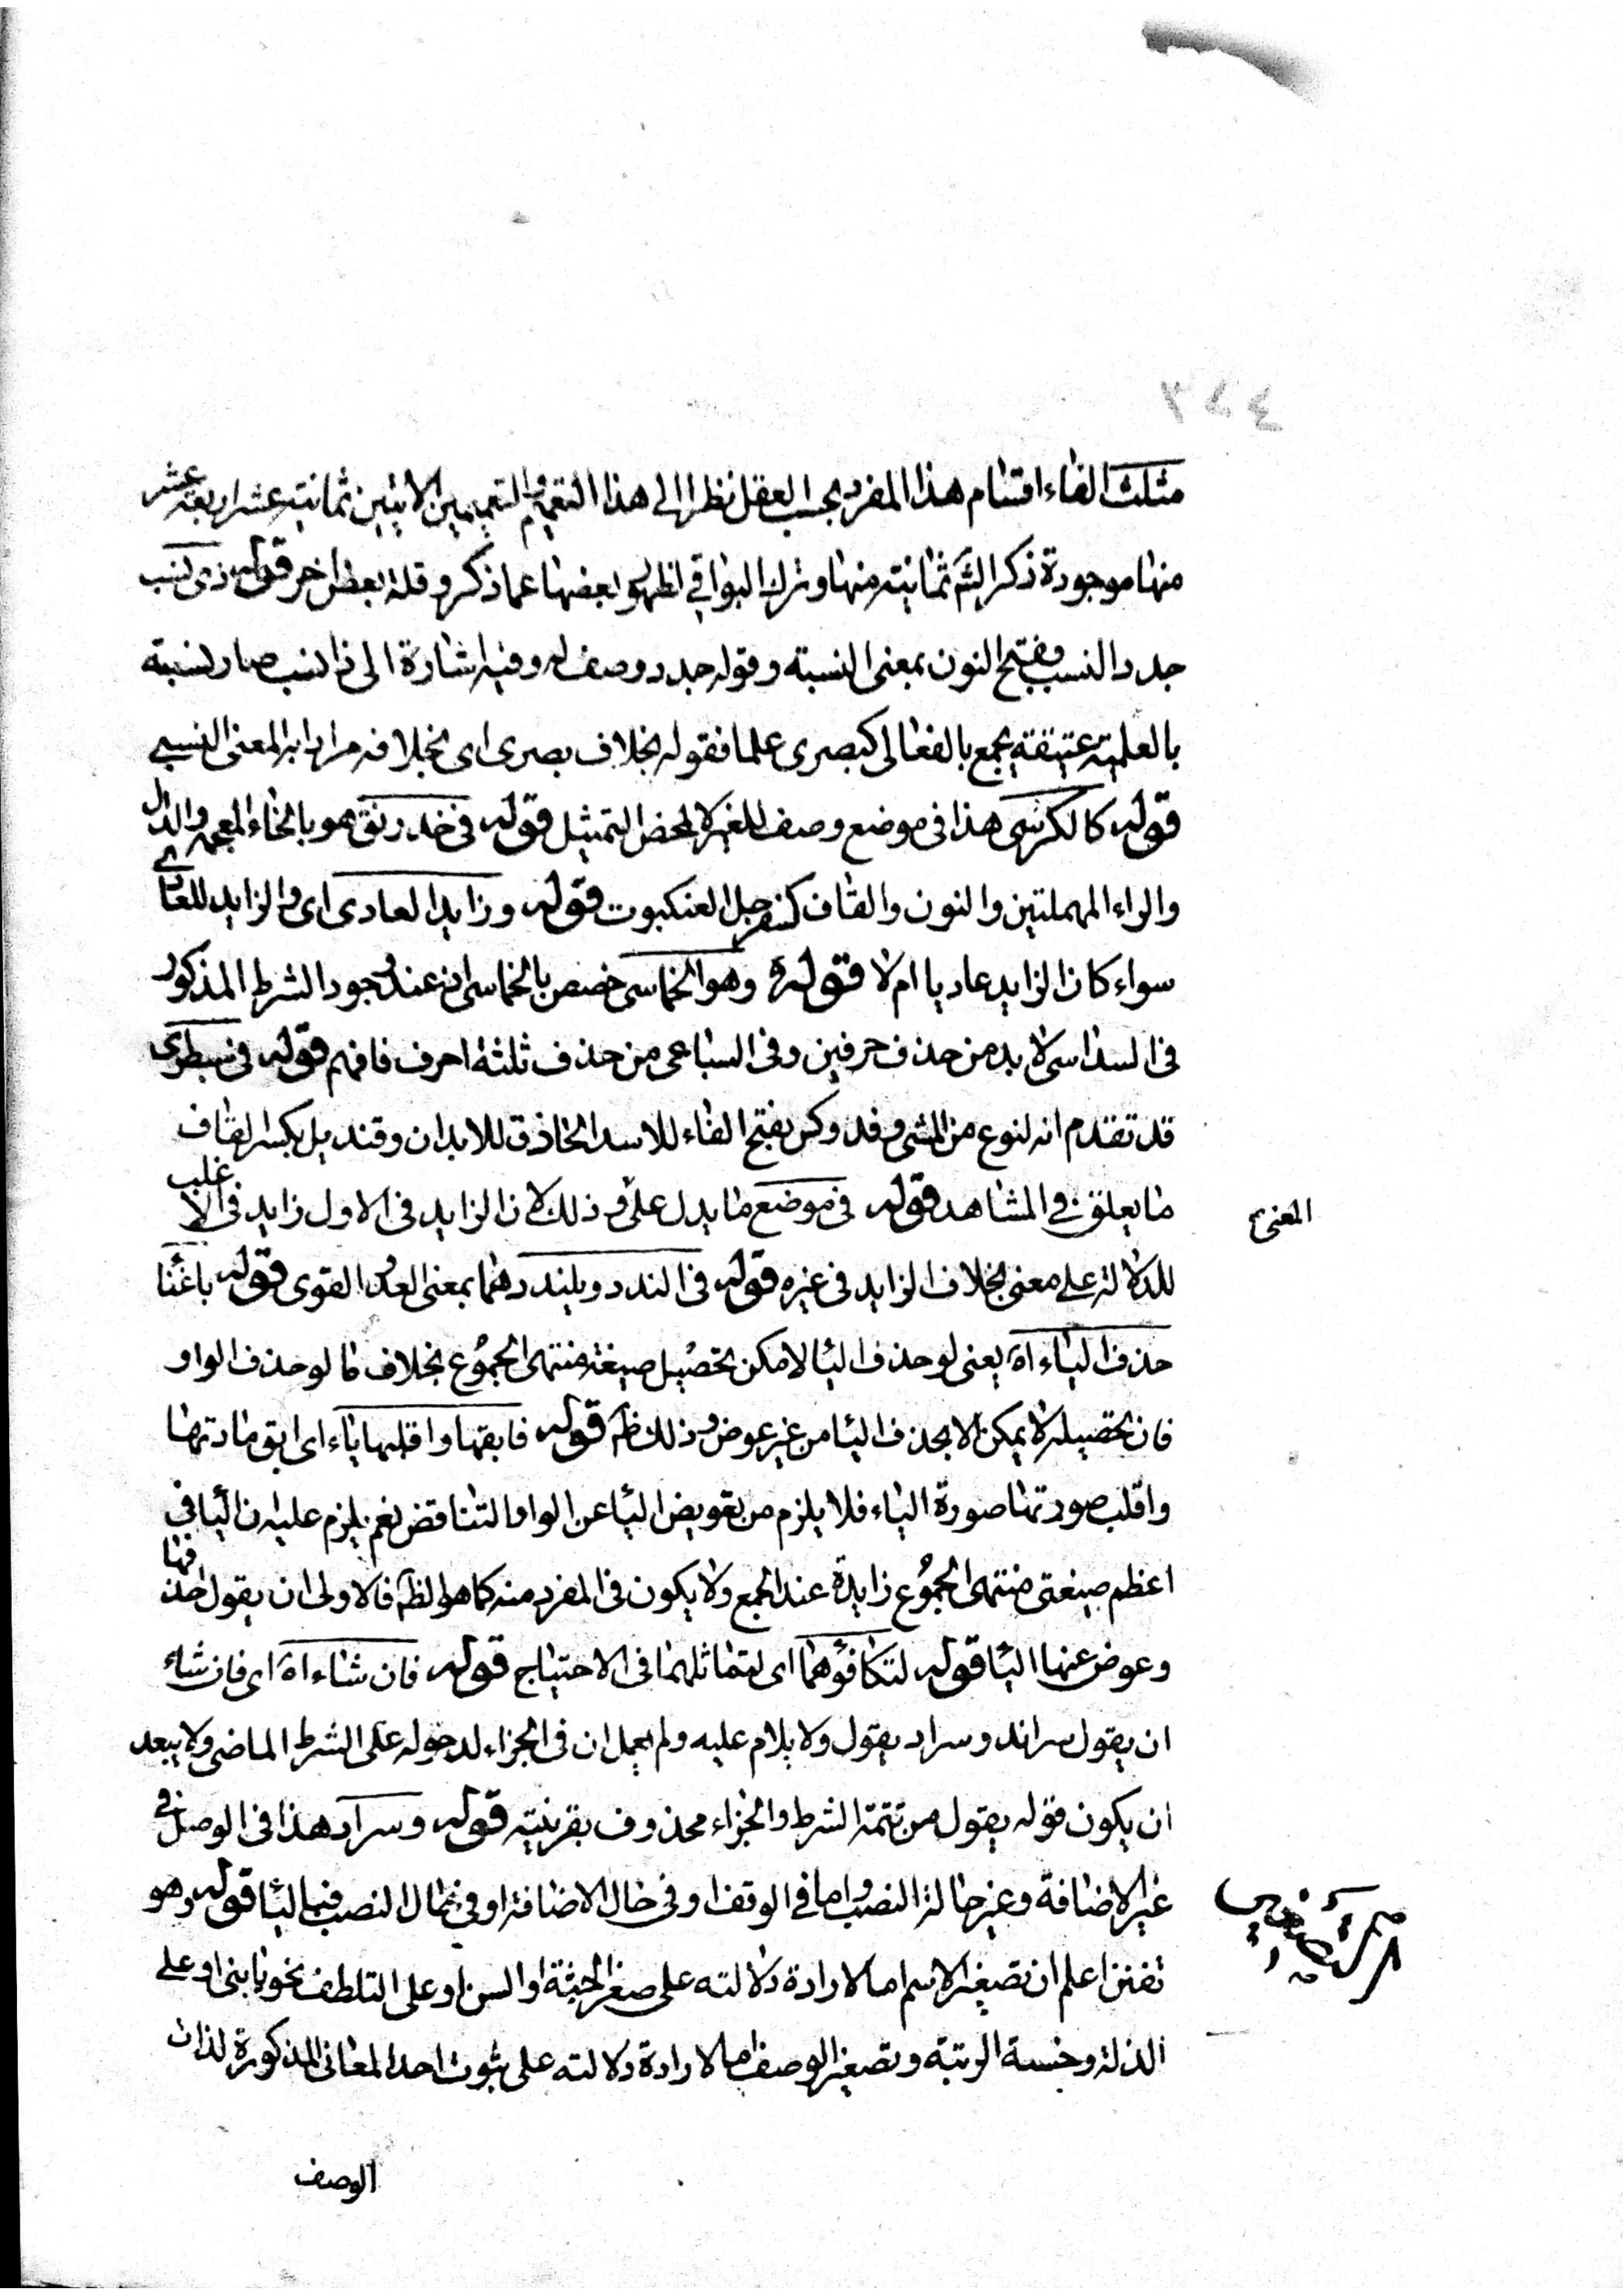 مثلث الفاء اقسام هذا المفرد بحسب العقل نظرا الى هذا التعميم والتعميمين الاتيين ثمانية عشر اربعة عشر
منها موجودة ذكر الشم ثمانية منها وترك البواقي لظهور بعضها عما ذكر وقلة بعض اخر قوله ذى نسب
جدد النسب بفتح النون بمعنى النسبة وقوله جدد وصف له وفيه اشارة الى ان ذا نسب صار نسبته
بالعلمية عتيقة يجمع بالفعالى كبصرى علما فقوله بخلاف بصرى اى بخلافه مرادا به المعنى النسبي
قوله كالكرسى هذا فى موضع وصف للغير لا لمحض التمثيل قوله فى خدرنق هو بالخاء المعجمة والدال
والراء المهملتين والنون والقاف كسفرجل العنكبوت قوله وزايد العادى اى والزايد للعادى
سواء كان الزايد عاديا ام لا قوله وهو الخماسى خصص بالخماسى لانه عند وجود الشرط المذكور
فى السداسى لا بد من حذف حرفين وفى السباعى من حذف ثلثة احرف فافهم قوله فى سبطرى
قد تقدم انه لنوع من المشى وفدوكس بفتح الفاء للاسد الحاذق للابدان وقنديل بكسر القاف
ما يعلق فى المشاهد قوله فى موضع ما يدل على وذلك لان الزايد فى الاول زايد فى الاغلب
للدلالة على معنى بخلاف الزايد فى غيره قوله فى الندد ويلندد هما بمعنى العدو القوى قوله ياغنا
حذف الياء اه يعنى لو حذف اليا لا مكن تحصيل صيغة منتهى الجموع بخلاف ما لو حذف الواو
فان تحصيله لا يمكن الا بحذف اليا من غير عوض وذلك ظم قوله فابقها واقلبها ياء اى ابق مادتها
واقلب صورتها صورة الياء فلا يلزم من تعويض اليا عن الواو التناقض نعم يلزم عليه ان اليا فى
اعظم صيغتى منتهى الجموع زايدة عند الجمع ولا يكون فى المفرد منه كما هو الظم فالاولى ان يقول احذفها
وعوض عنها اليا قوله لتكافؤهما اى لتماثلهما فى الاحتياج قوله فان شاء اه اى فان شاء
ان يقول سراند وسراد يقول ولا يلام عليه ولم يعمل ان فى الجزاء لدخوله على الشرط الماضى ولا يبعد
ان يكون قوله يقول من تتمة الشرط والجزاء محذوف بقرينة قوله وسراد هذا فى الوصل فى
غير الاضافة وغير حالة النصب واما فى الوقف او فى حال الاضافة او فى حال النصب فباليا قوله وهو
تفنن اعلم ان تصغير الاسم اما لارادة دلالته على صغر الجثة او السن او على التلطف نحو يا بنى او على
الذلة وخسة الرتبة وتصغير الوصف اما لارادة دلالته على ثبوت احد المعانى المذكورة لذات
المعنى
الوصف